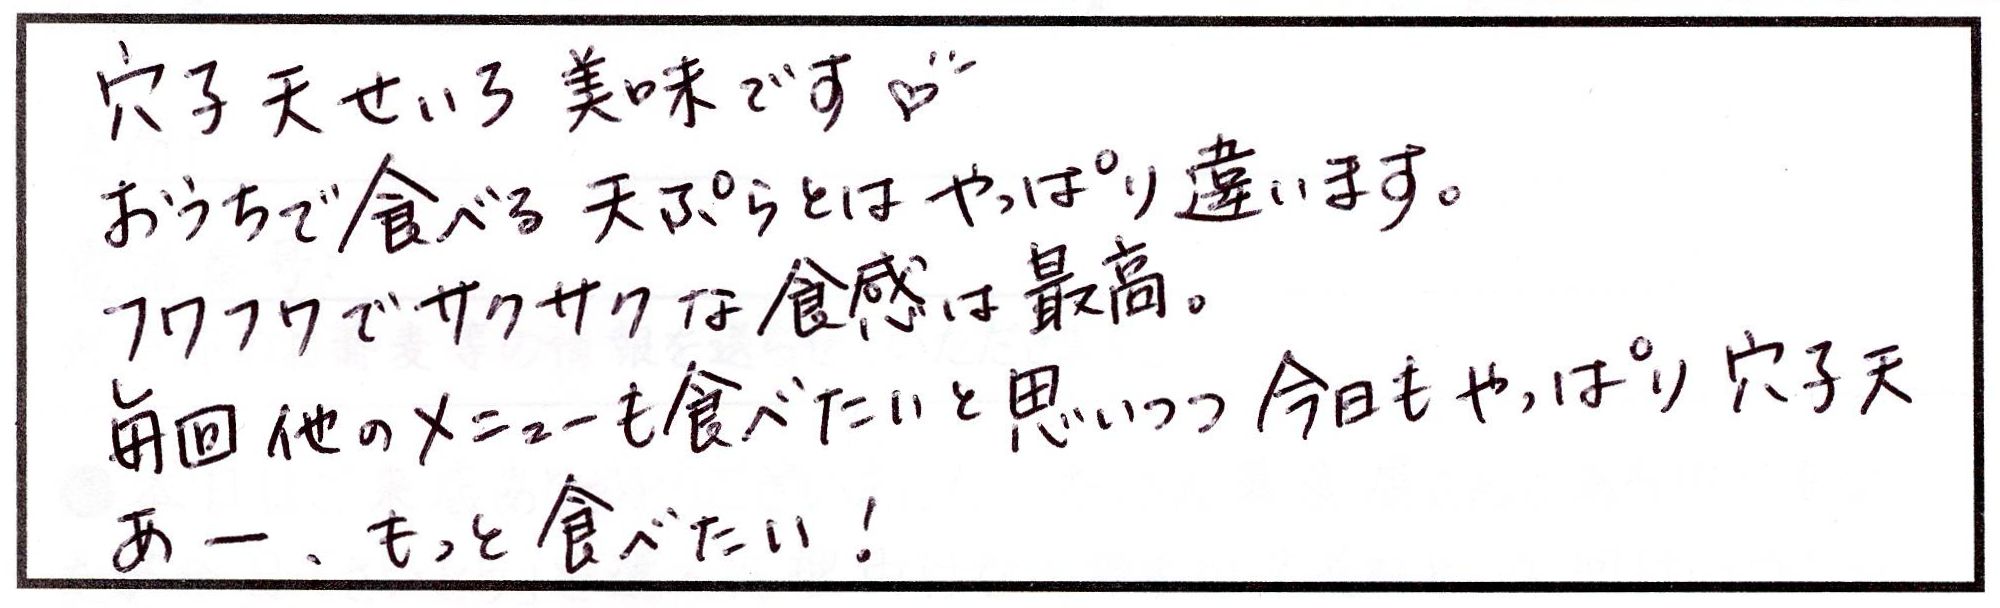 穴子天せいろ 美味です♡
おうちで食べる 天ぷらとは やっぱり違います。
フワフワでサクサクな食感は最高。
毎回他のメニューも食べたいと思いつつ 今日もやっぱり穴子天
あー、もっと食べたい！